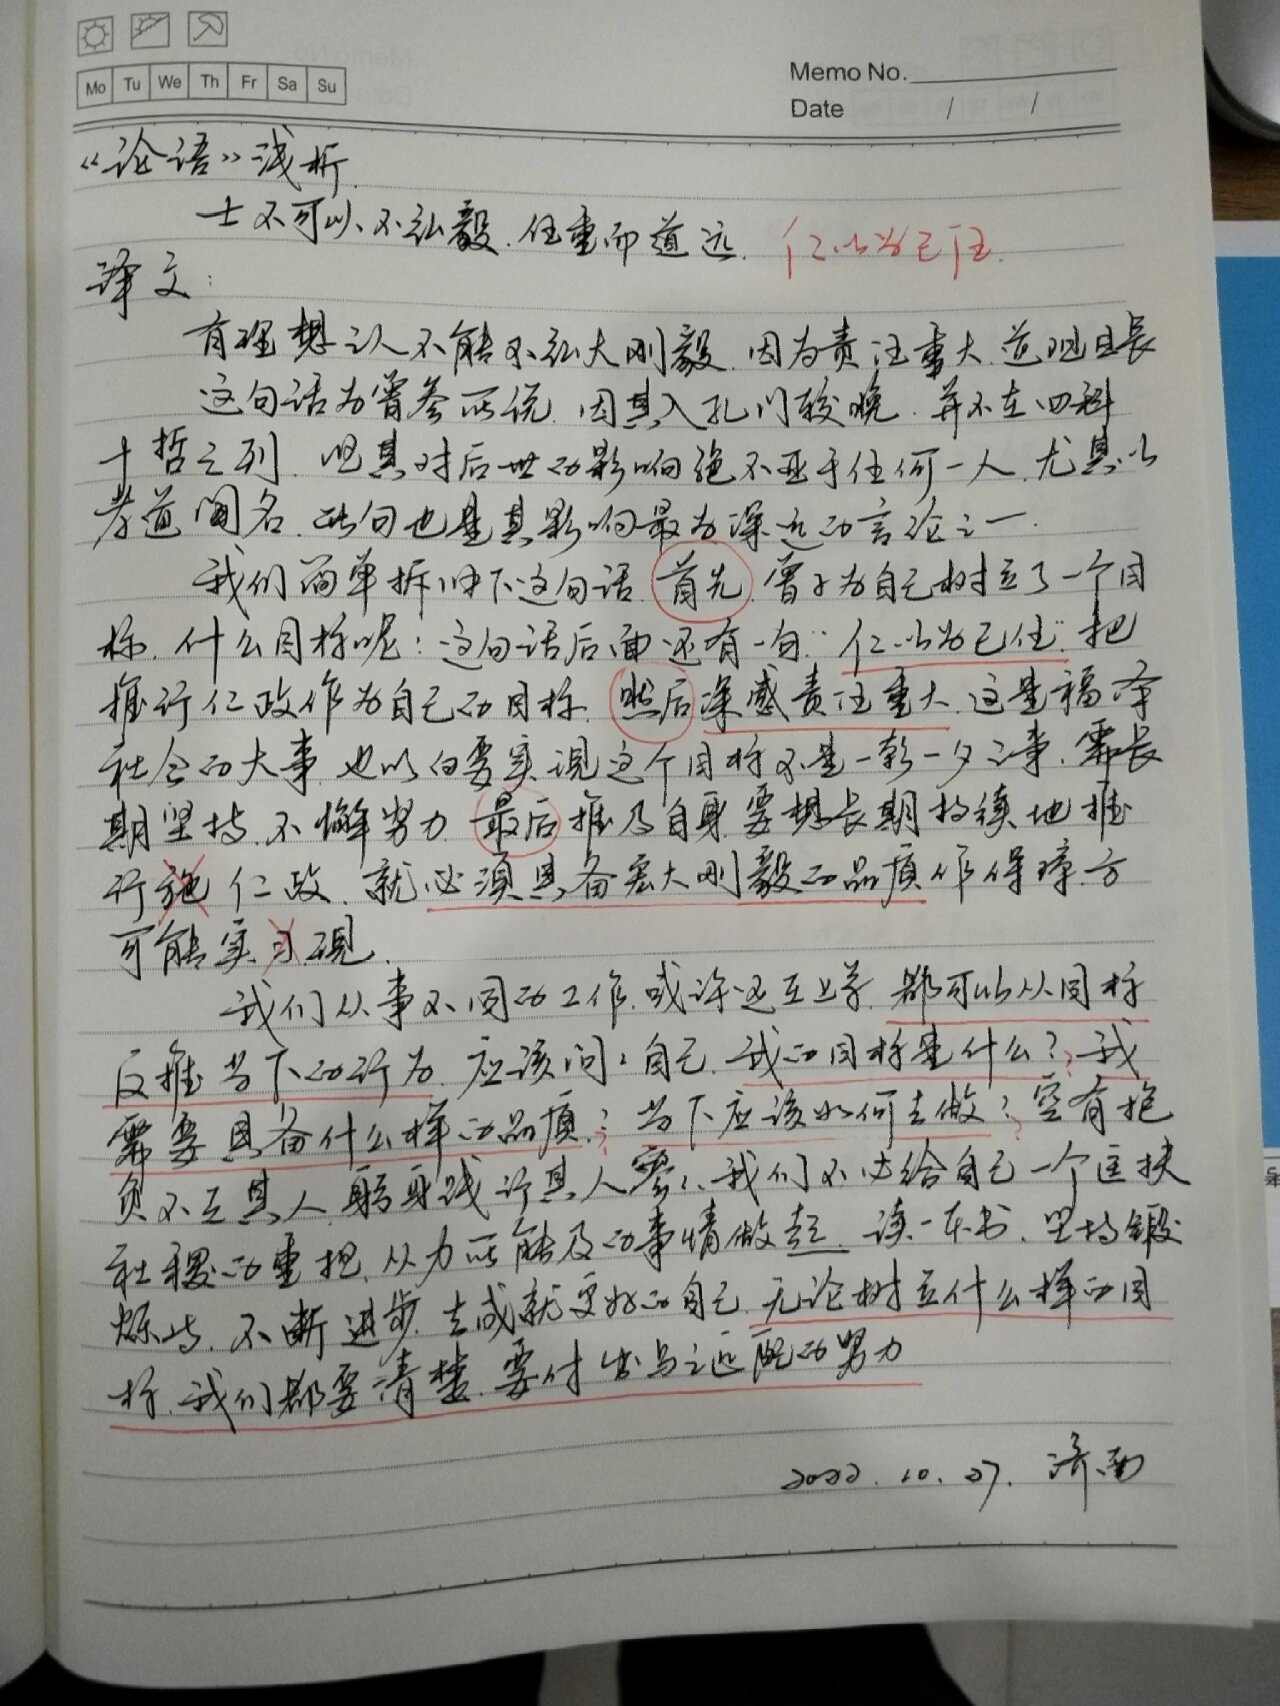 Mo Tu We Th Fr Sa Su
Memo No.
Date / /
《论语》浅析.
士不可以不弘毅.任重而道远. 仁以为己任.
译文:
有理想之人不能不弘大刚毅.因为责任重大.道阻且长
这句话为曾参所说.因其入孔门较晚.并不在四科
十哲之列.但其对后世的影响绝不亚于任何一人.尤其以
孝道闻名.此句也是其影响最为深远的言论之一.
我们简单拆解下这句话.首先.曾子为自己树立了一个目
标.什么目标呢:这句话后面还有一句:"仁以为己任".把
推行仁政作为自己的目标.然后深感责任重大.这是福泽
社会的大事.也明白要实现这个目标不是一朝一夕之事.需长
期坚持.不懈努力.最后推及自身.要想长期持续地推
行施仁政.就必须具备宏大刚毅的品质作保障.方
可能实现.
我们从事不同的工作.或许还在上学.都可以从目标
反推当下的行为.应该问问自己.我的目标是什么?我
需要具备什么样的品质?当下应该如何去做?空有抱
负不乏其人.躬身践行其人寥寥.我们不必给自己一个匡扶
社稷的重担.从力所能及的事情做起.读一本书.坚持锻
炼.不断进步.去成就更好的自己.无论树立什么样的目
标.我们都要清楚.要付出与之匹配的努力
2022.10.27.济南